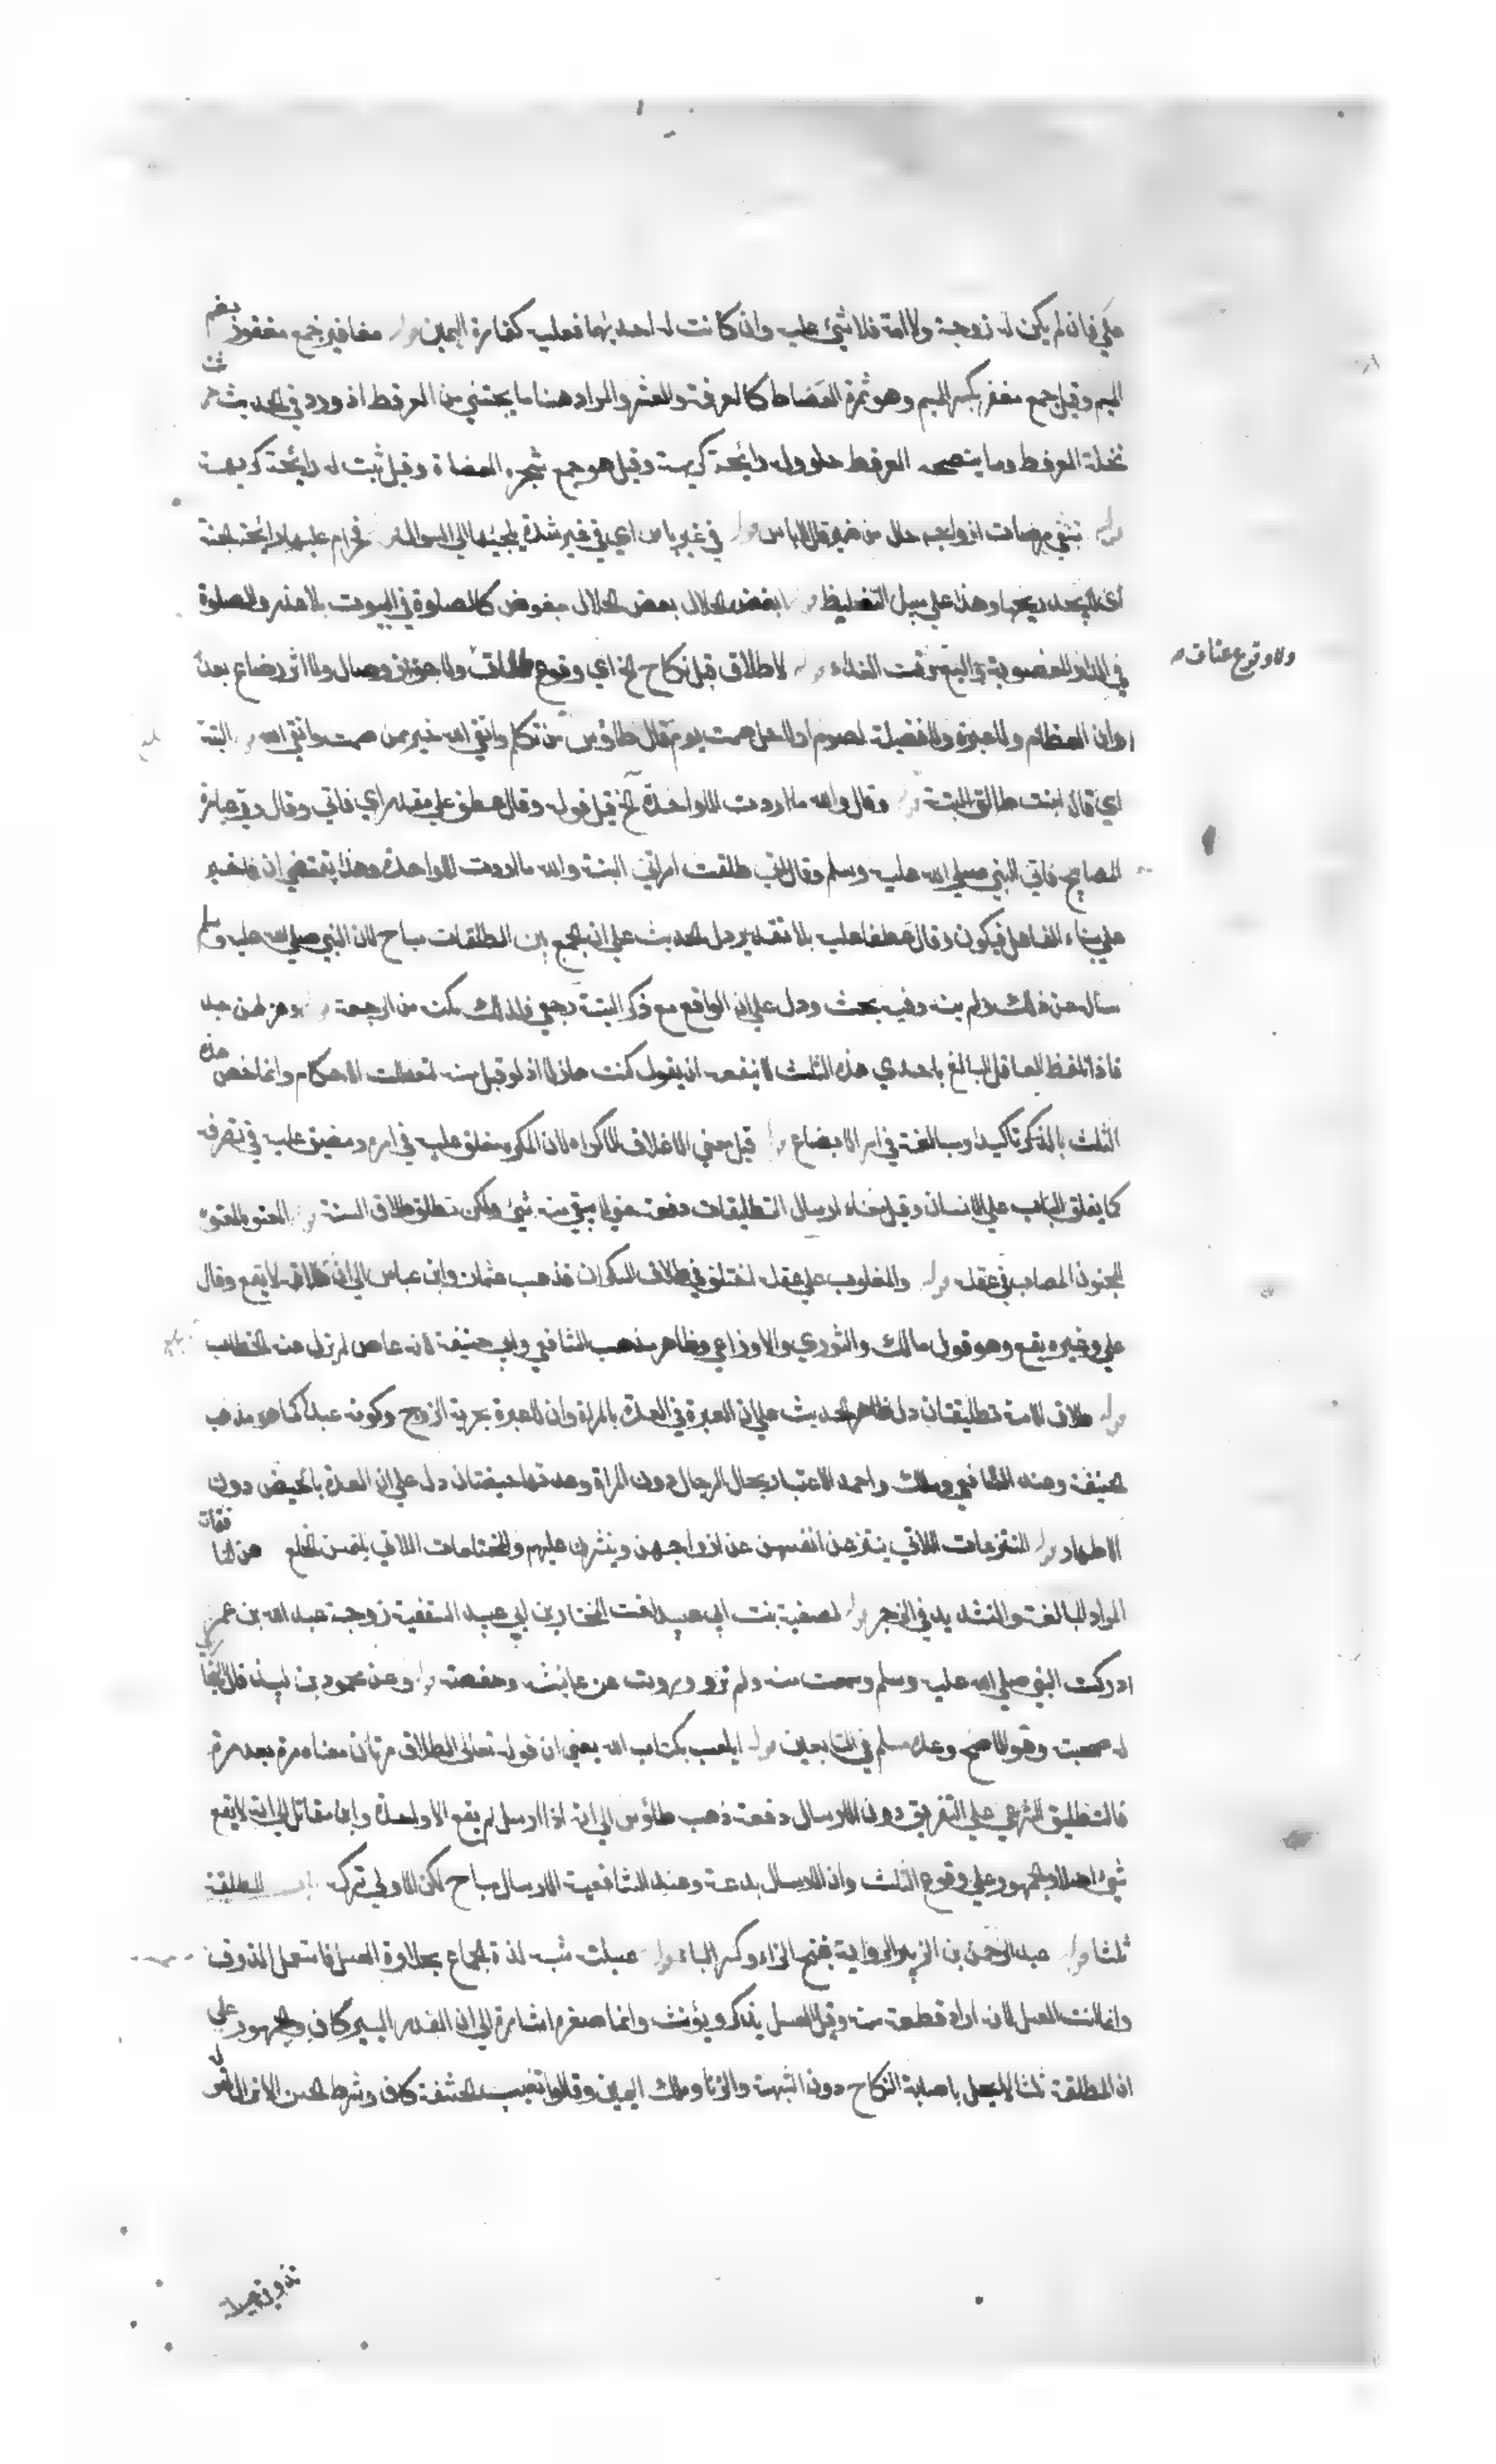 علي فان لم يكن له زوجة ولا امة فلا شيئ عليه وان كانت له احديهما فعليه كفارة اليمين قوله مغافير جمع مغفور بضم
الميم وقيل جمع مغفر بكسر الميم وهو ثمرة العضاط كالعرفة والعشر والمراد هنا ما يجتني من العرفط اذ ورد في الحديث
نحلة العرفط وما ينضحه العرفط حلو وله رائحة كريهة وقيل هو جمع شجره العضاة وقيل نبت له رائحة كريهة
قوله تبتغي مرضات ازواجه حال من ضمير قال الباس قوله في غير باس اي في غير شدة يلجئها الي السوال قوله فحرام عليها رائحة الجنة
اي لا تجد ريحها وهذا علي سبيل التغليظ قوله ابغض الحلال بعض الحلال مبغوض كالصلوة في البيوت بلا عذر والصلوة
في الدار المغصوبة والبيع وقت النداء قوله لا طلاق قبل نكاح الخ اي وقوع طلاق ولا جواز وصال ولا اثر رضاع بعد
ولا وقوع عتاق
اوان الفطام ولا عبرة ولا فضيلة لصوم اوالعل صمت يوم قال طاوس من تكلم واتقي الله خير ممن صمت واتقي الله قوله البتة
اي قال انت طالق البتة قوله وقال والله ما اردت الا واحدة الخ قيل قوله وقال عطف علي مقدر اي فاتي وقال وعبارة
المصابيح فاتي النبي صلي الله عليه وسلم وقال اني طلقت امراتي البتة والله ما اردت الا واحدة وهذا يقتضي ان فاخبر
علي بناء الفاعل فيكون وقال عطفا عليه بلا تقدير دل الحديث علي ان الجمع بين الطلقات مباح لان النبي صلي الله عليه وسلم
سأل عن ذلك ولم ينه وفيه بحث ودل علي ان الواقع مع ذكر البتة رجعي فلذلك مكن من الرجعة قوله وهزلهن جد
فاذا تلفظ العاقل البالغ باحدي هذه الثلث لا ينفعه ان يقول كنت هازلا اذ لو قبل منه لتعطلت الاحكام وانما خص هذه
الثلث بالذكر تاكيدا ومبالغة في امر الابضاع قوله قيل معني الاغلاق الاكراه لان المكره مغلق عليه في امره ومضيق عليه في تصرفه
كما يغلق الباب علي الانسان وقيل معناه ارسال التطليقات دفعة حتي لا يبقي منه شيئ ولكن تطلق طلاق السنة قوله المعتوه
المجنون المصاب في عقله قوله والمغلوب علي عقله اختلف في طلاق السكران فذهب عثمان وابن عباس الي ان طلاقه لا يقع وقال
علي وغيره يقع وهو قول مالك والثوري والاوزاعي وظاهر مذهب الشافعي وابي حنيفة لانه عاص لم يزل عنه الخطاب
قوله طلاق الامة تطليقتان دل ظاهر الحديث علي ان العبرة في العدة بالمراة وان لا عبرة بحرية الزوج وكونه عبدا كما هو مذهب
حنيفة وعند الشافعي ومالك واحمد الاعتبار بحال الرجال دون المراة وعدتها حيضتان دل علي ان العدة بالحيض دون
الاطهار قوله المنتزعات اللاتي ينتزعن انفسهن عن ازواجهن وينشزن عليهم والمختلعات اللاتي يلتمسن الخلع هن المنافقات
المراد المبالغة والتشديد في الزجر قوله لصفية بنت ابي عبيد اخت المختار بن ابي عبيد الثقفية زوجة عبد الله بن عمر
ادركت النبي صلي الله عليه وسلم وسمعت منه ولم ترو وروت عن عايشة وحفصة قوله وعن محمود بن لبيد قال البخاري
له صحبة وهو الاصح وعده مسلم في التابعين قوله ايلعب بكتاب الله يعني ان قوله تعالي الطلاق مرتان معناه مرة بعد مرة
فالتطليق الشرعي علي التفريق دون الارسال دفعة ذهب طاؤس الي انه اذا ارسل لم يقع الا واحدة وابن مقاتل الي انه لا يقع
شيئ اصلا والجمهور علي وقوع الثلث وان الارسال بدعة وعند الشافعية الارسال مباح لكن الاولي تركه المطلقة
ثلثا قوله عبد الرحمن بن الزبير الرواية بفتح الزاء وكسر الباء قوله عسيلته شبه لذة الجماع بحلاوة العسل فاستعمل الذوق
وانما انث العسل لانه اراد قطعة منه وقيل العسل يذكر ويؤنث وانما صغره اشارة الي ان القدر اليسير كاف والجمهور علي
ان المطلقة ثلثا لا يحل باصابة النكاح دون الشبهة والزنا وملك اليمين وقالوا تغييب الحشفة كاف وشرط الحسن الانزال
تذوقي عسيلته